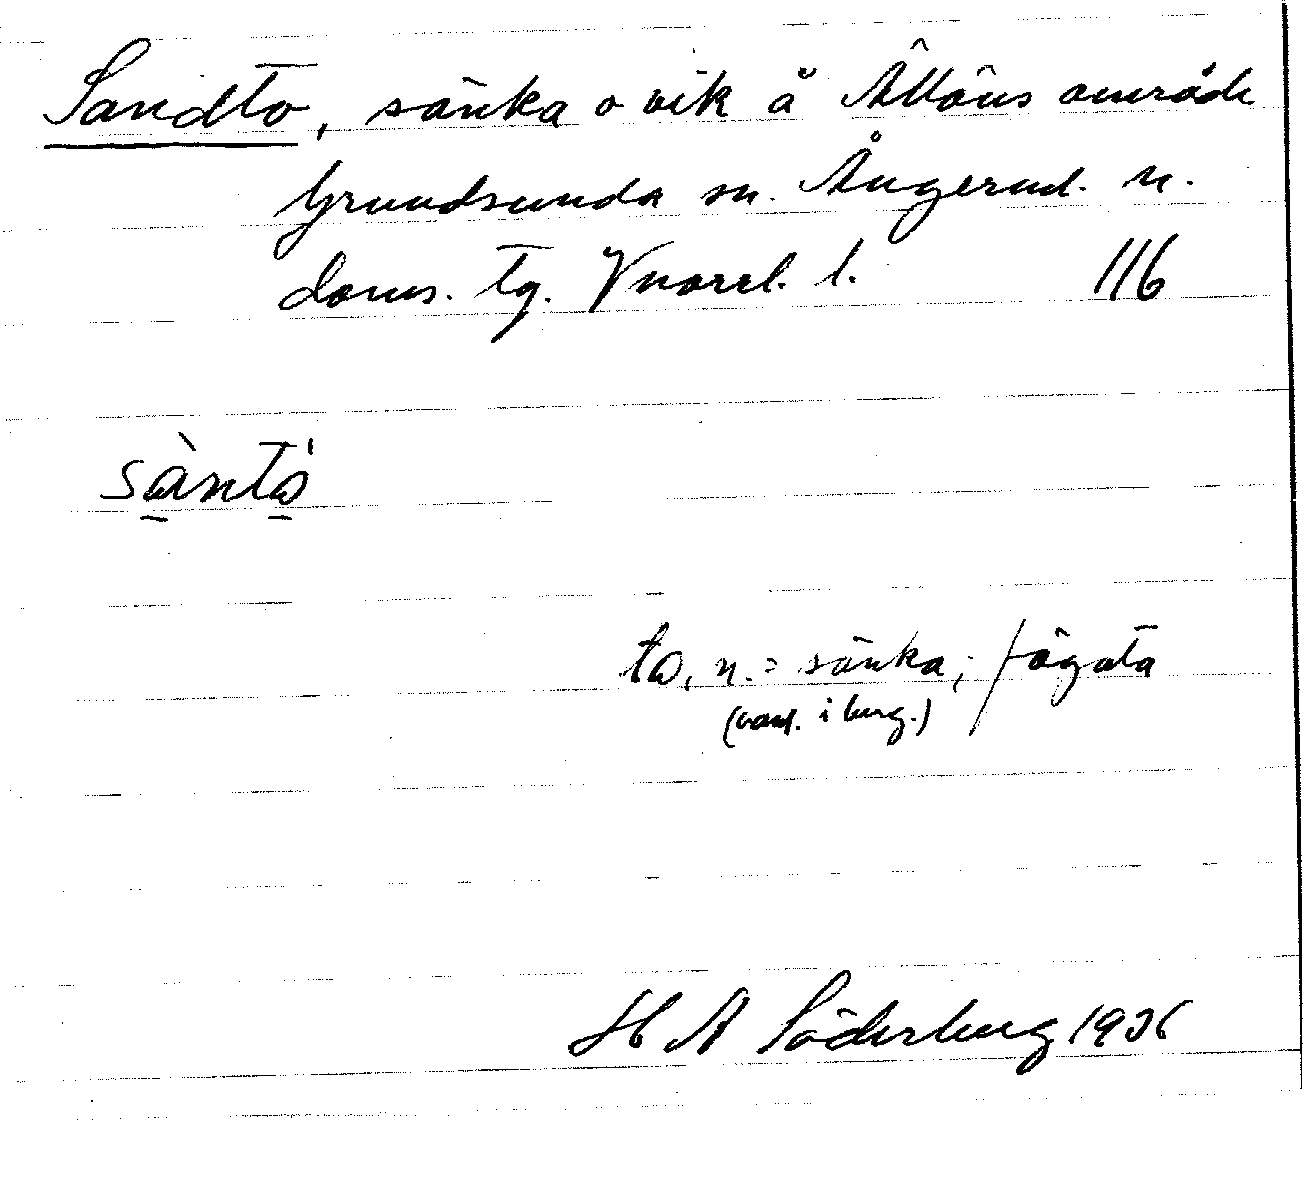 Sandto, sänka o vik å Ällöns område
Grundsunda sn. Ångerml. n.
doms. tg. Vnorrl. l. 116
sàntó
to, n. = sänka, fägata
(vanl. i berg.)
H A Söderberg 1936